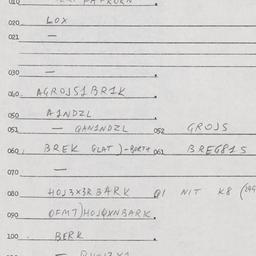 020 LOX
021 —
030 —
040 AGROJS1BR1K
050 A1NDZL
051 — QAN1NDZL 052 GROJS
060 BREK GLAT)-BERTH 061 BREG81S
070 —
080 HOJ3X3RBARK Q1 NIT K8
090 OFMT)HOJQXNBARK
100 BERK